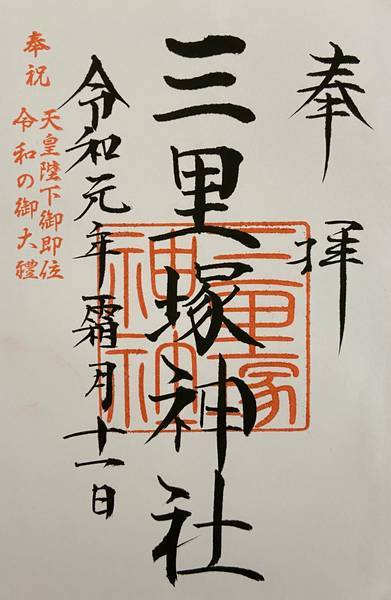 奉拝
三里塚神社
三里塚
神社
令和元年霜月十一日
奉祝
天皇陛下御即位
令和の御大禮